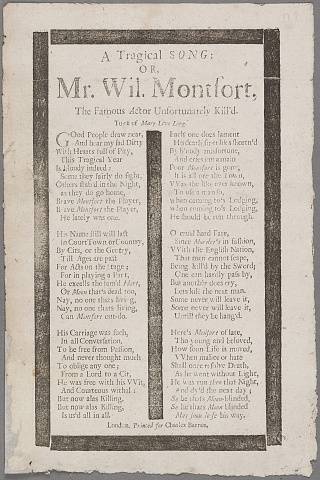 A Tragical SONG:
OR,
Mr. Wil. Montfort,
The Famous Actor Unfortunately Kill'd.
Tune of Mary Live Long.
GOod People draw near,
And hear my sad Ditty
With Hearts full of Pity,
This Tragical Year
Is bloody indeed:
Some they fairly do fight,
Others stab'd in the Night,
as they do go home,
Brave Montfort the Player,
Brave Montfort the Player,
He lately was one.
His Name still will last
in Court Town or Country,
By Cits, or the Gentry,
Till Ages are past
For Acts on the Stage;
For in playing a Part,
He excells the
Or Moon that's dead too,
Nay, no one that's living,
Nay, no one that's living,
Can Montfort out-do.
His Carriage was such,
In all Conversation,
To be free from Passion,
And never thought much
To oblige any one;
From a Lord to a Cit,
He was free with his VVit,
And Courteous withal:
But now alas Killing,
But now alas Killing,
Is us'd all in all.
Each one does lament
His
By bloody misfortune,
And cries
Poor Montfort is gone,
It is all o're the Town,
VVas the like ever known,
To use a man so,
when coming to's Lodging,
when coming to's Lodging,
He should be run through.
O sad hard Fate,
Since Murder's in fashion,
VVith the English Nation,
That men cannot scape,
Being kill'd by the Sword;
One can hardly pass by,
But another does cry,
Lets kill the next man.
Some never will leave it,
Some never will leave it,
Untill they be hang'd.
Here's Montfort of late,
Tho young and beloved,
How soon Life is moved,
VVhen malice or hate
Shall once resolve Death,
As he went without Light,
He was run thro that Night,
And dy'd the next day;
So he that's Moon-blinded
So he that's Moon-blinded
May soon lose his way.
London, Printed for Charles Barnet.